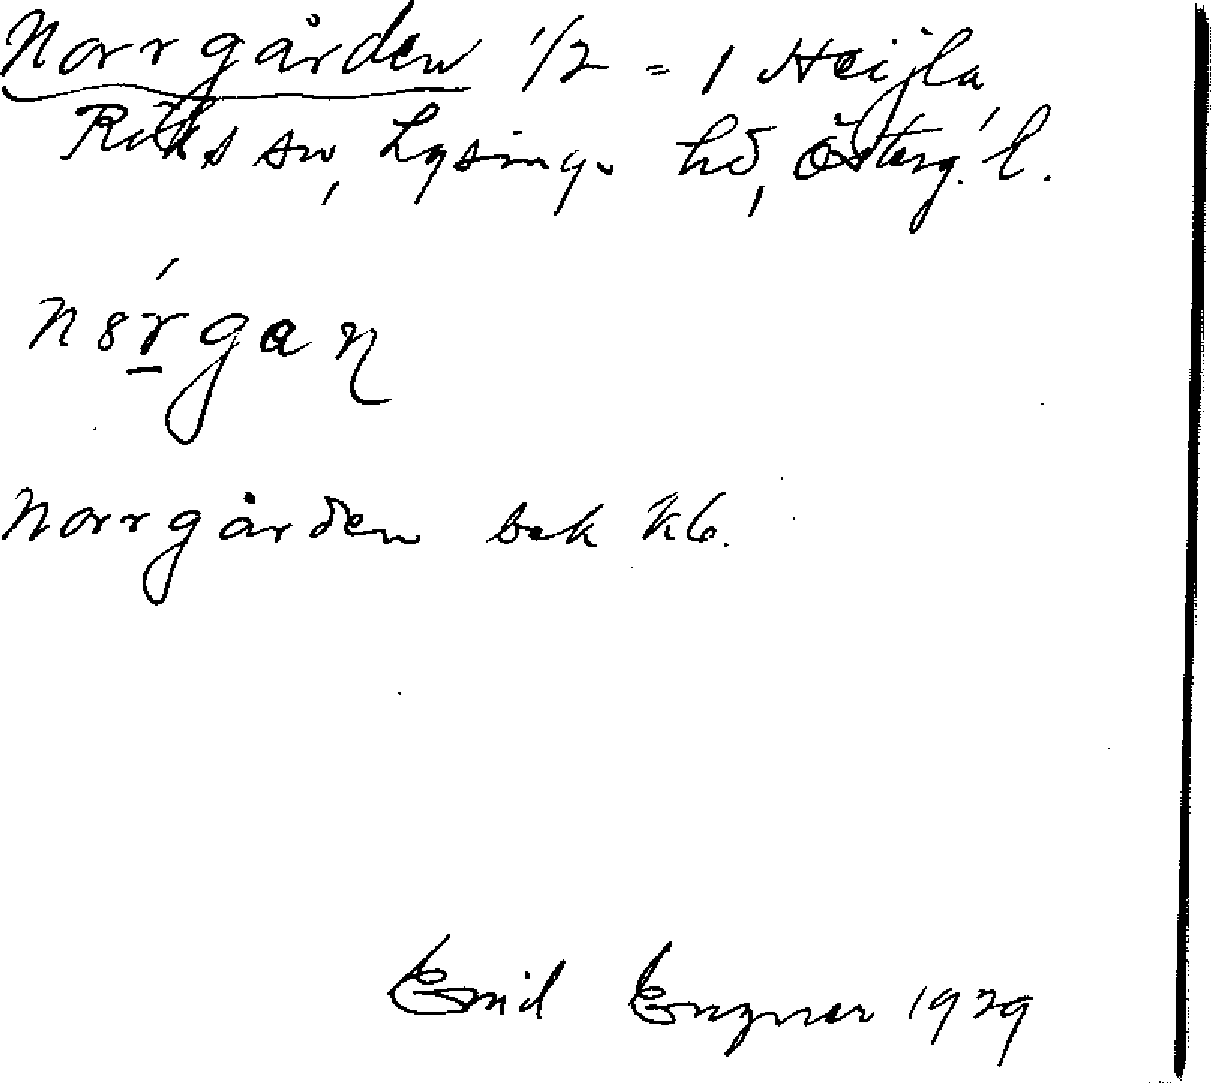 Norrgården 1/2 = 1 Heijla
Röks sn, Lysings hd, Österg. l.
nȣŕgaɳ
Norrgården bek kb.
Emil Enzner 1929